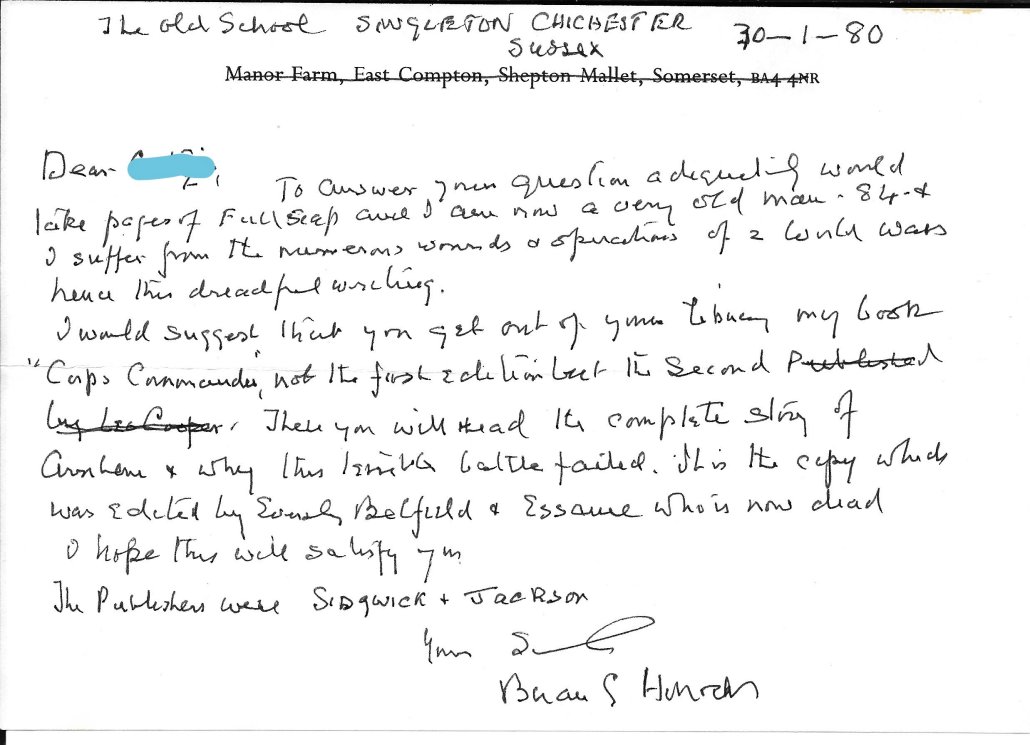 The old School SINGLETON CHICHESTER 30-1-80
SUSSEX
Manor Farm, East Compton, Shepton Mallet, Somerset, BA4 4NR
Dear
To answer your question adequately would
take pages of Fullscap and I am now a very old man - 84 - &
I suffer from the numerous wounds & operations of 2 World Wars
hence this dreadful writing.
I would suggest that you get out of your library my book
"Corps Commander", not the first edition but the Second Published
by Leo Cooper. There you will read the complete story of
Arnhem & why this terrible battle failed. It is the copy which
was edited by Eversley Belfield & Essame who is now dead
I hope this will satisfy you
The Publishers were SIDGWICK + JACKSON
Yours
Brian G Horrocks